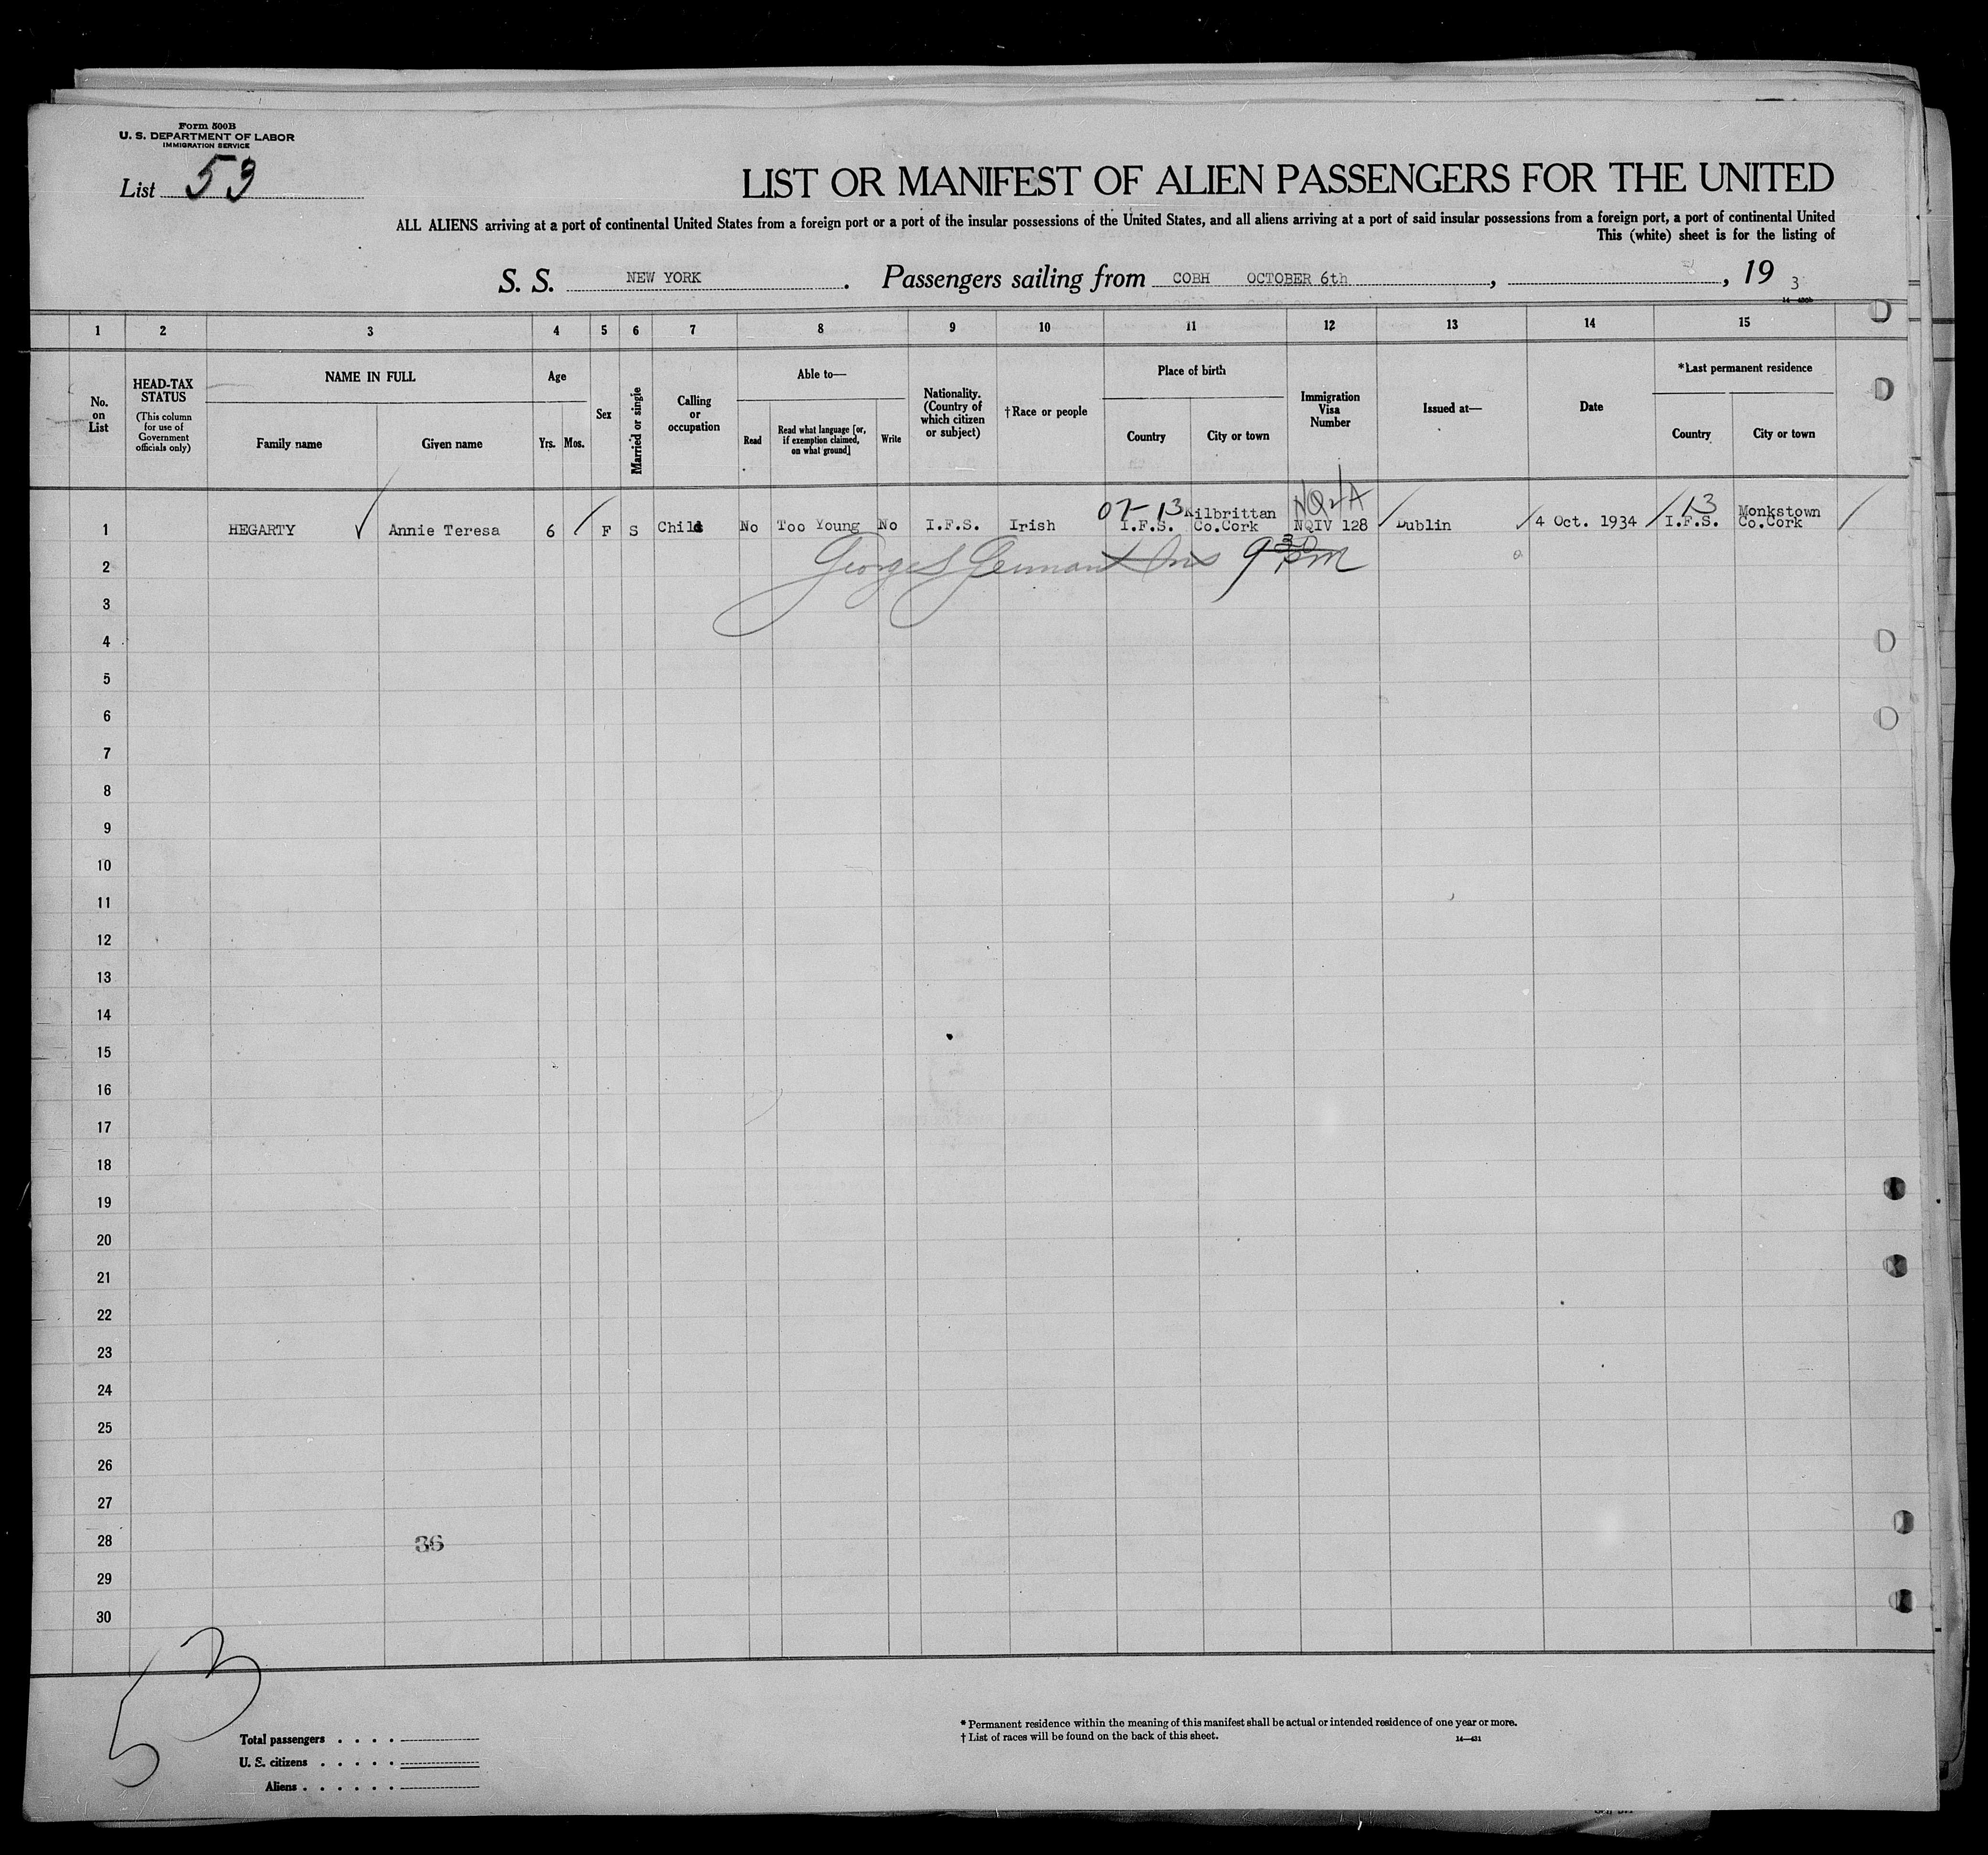 Form 500B
U. S. DEPARTMENT OF LABOR
IMMIGRATION SERVICE
List 53
LIST OR MANIFEST OF ALIEN PASSENGERS FOR THE UNITED
ALL ALIENS arriving at a port of continental United States from a foreign port or a port of the insular possessions of the United States, and all aliens arriving at a port of said insular possessions from a foreign port, a port of continental United
This (white) sheet is for the listing of
S. S. NEW YORK . Passengers sailing from COBH OCTOBER 6th , , 19 3
1 2 3 4 5 6 7 8 9 10 11 12 13 14 15
No. on List
HEAD-TAX STATUS
(This column for use of Government officials only)
NAME IN FULL
Family name
Given name
Age
Yrs.
Mos.
Sex
Married or single
Calling or occupation
Able to—
Read
Read what language [or, if exemption claimed, on what ground]
Write
Nationality. (Country of which citizen or subject)
†Race or people
Place of birth
Country
City or town
Immigration Visa Number
Issued at—
Date
*Last permanent residence
Country
City or town
07-13 13
1 HEGARTY Annie Teresa 6 F S Child No Too Young No I.F.S. Irish I.F.S. Kilbrittan Co.Cork NQIV 128 Dublin 4 Oct. 1934 I.F.S. Monkstown Co.Cork
2
3
4
5
6
7
8
9
10
11
12
13
14
15
16
17
18
19
20
21
22
23
24
25
26
27
28 36
29
30
53
Total passengers
U. S. citizens
Aliens
* Permanent residence within the meaning of this manifest shall be actual or intended residence of one year or more.
† List of races will be found on the back of this sheet.
14—431